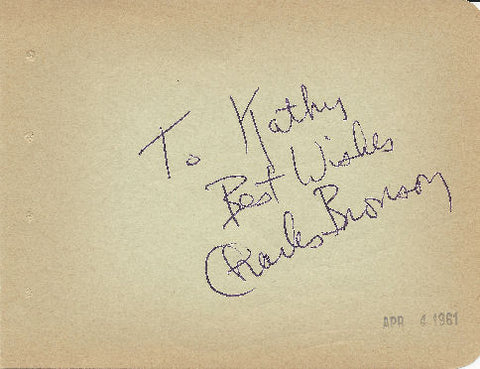 To Kathy
Best Wishes
Charles Bronson
APR 4 1961